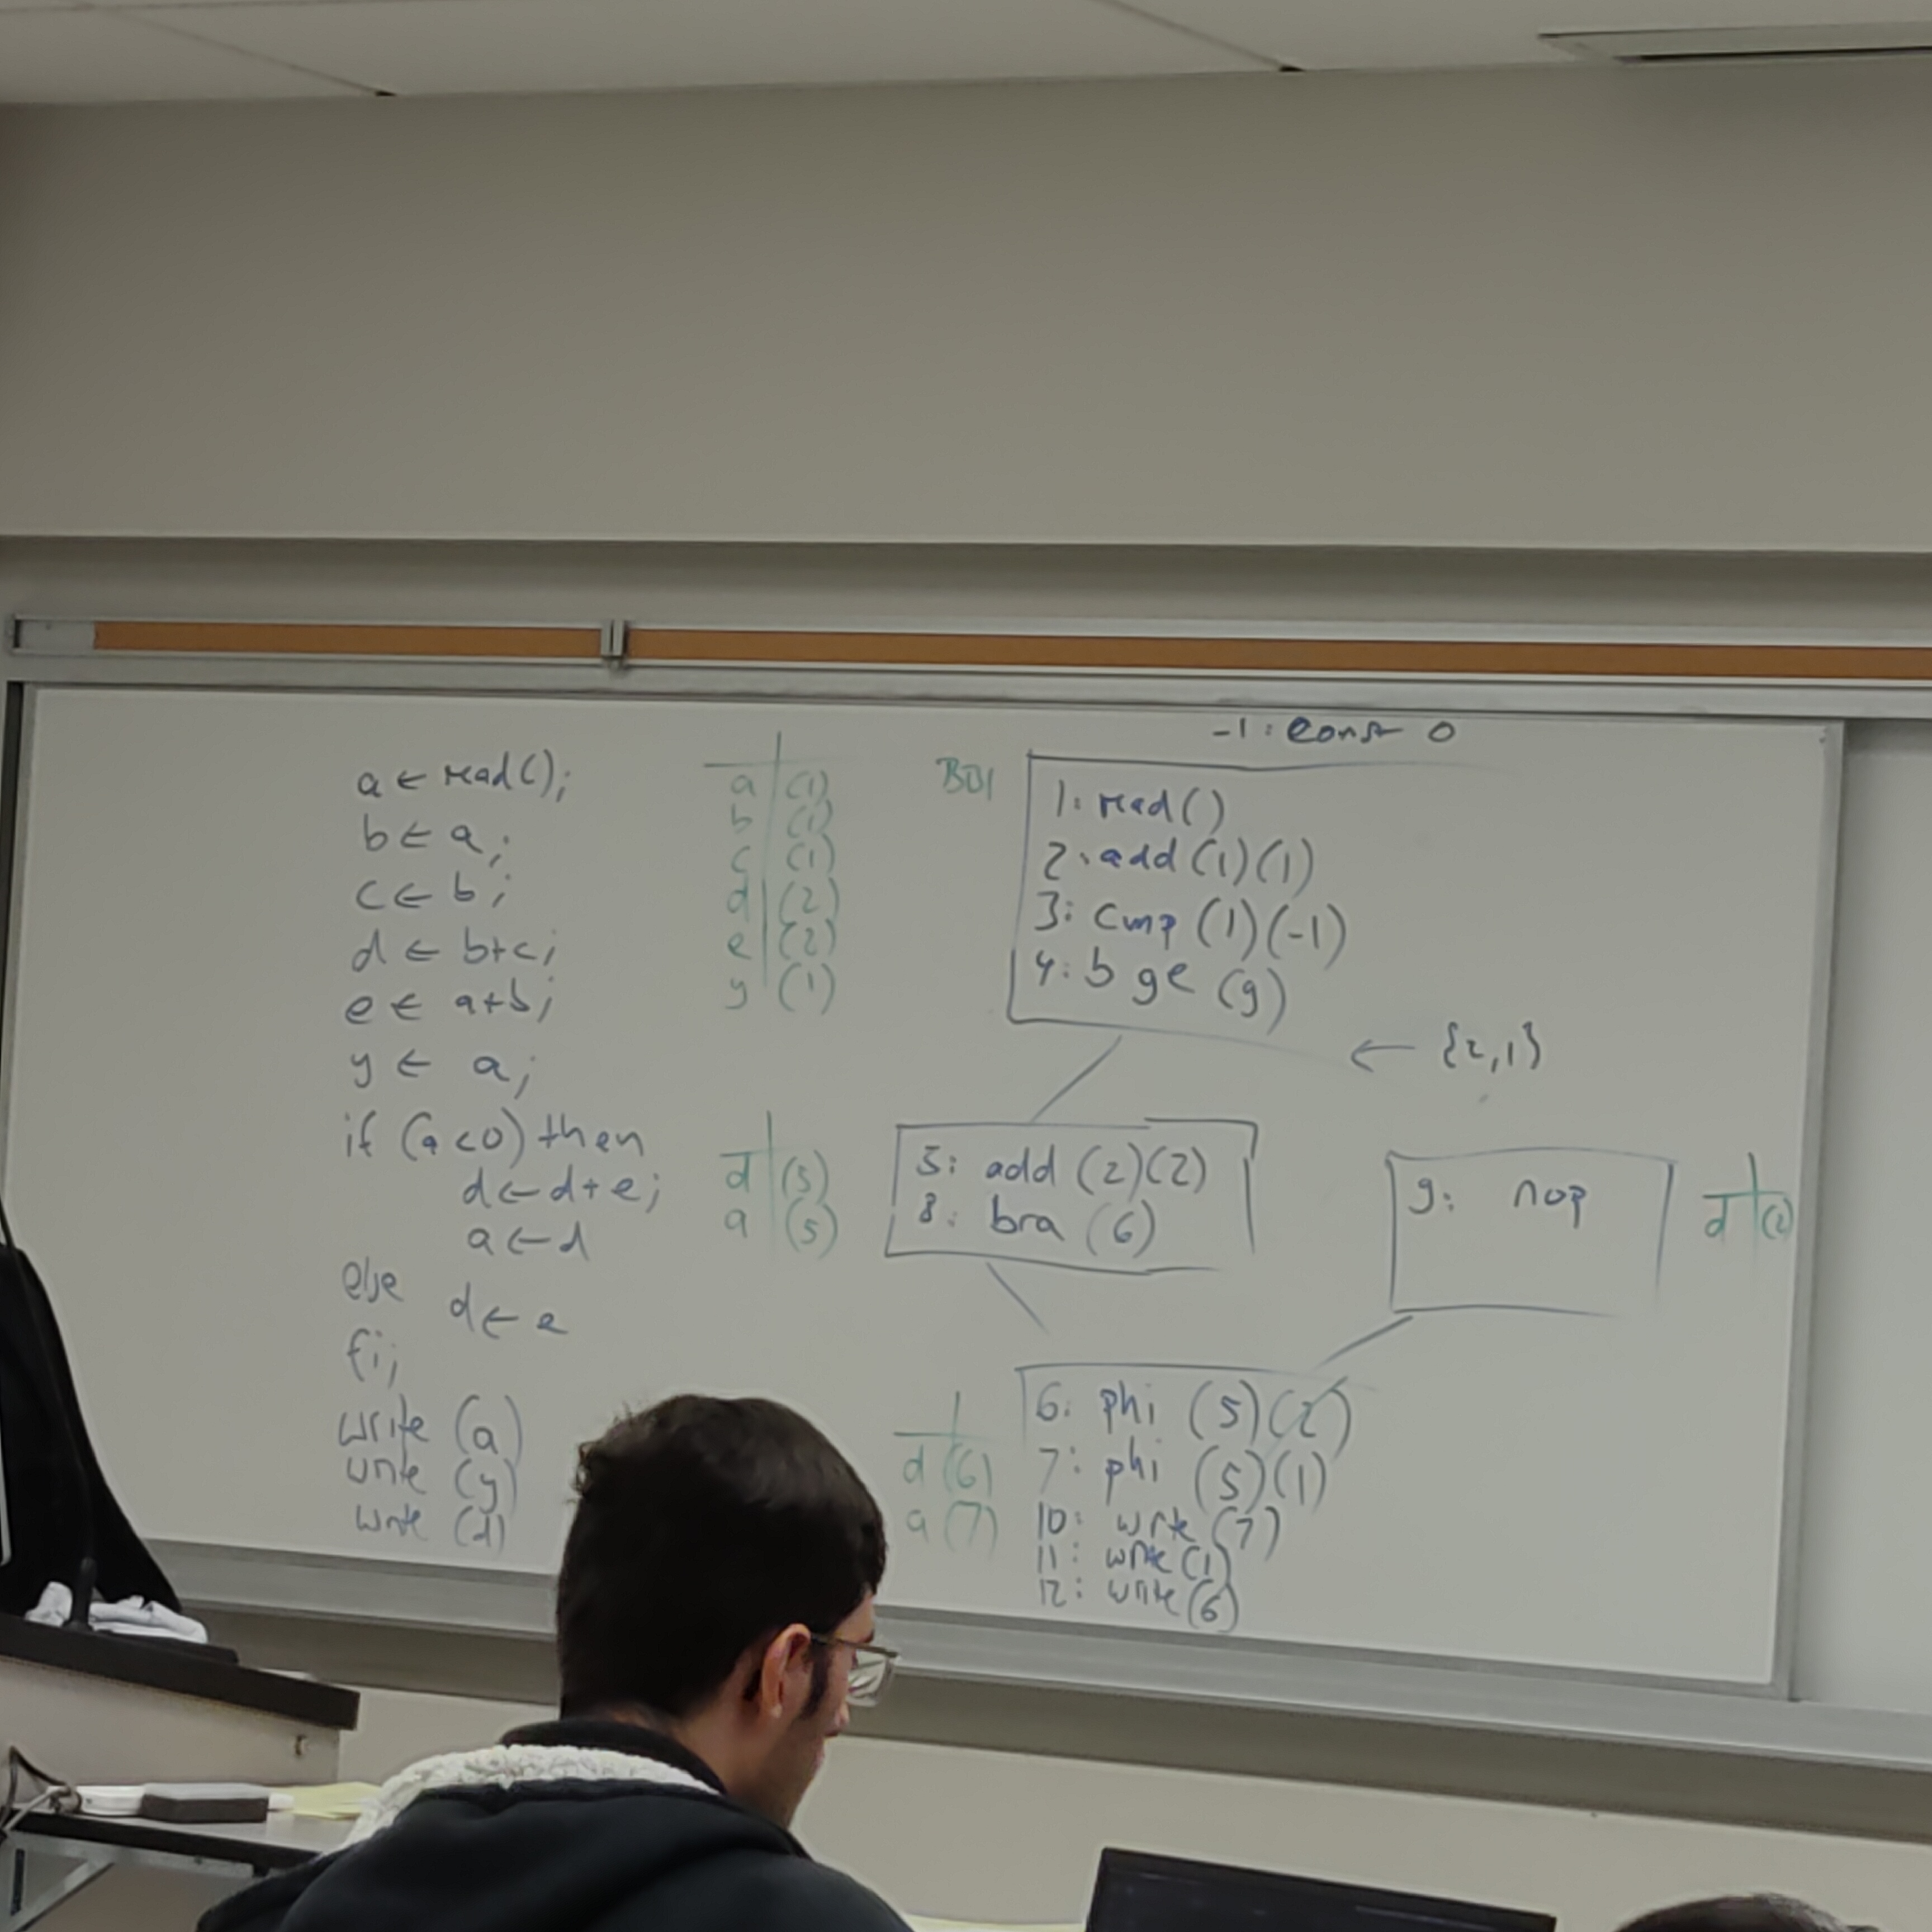 a ← read();
b ← a;
c ← b;
d ← b+c;
e ← a+b;
y ← a;
if (a<0) then
d ← d+e;
a ← d
else d ← e
fi;
write (a)
write (y)
write (d)
a (1)
b (1)
c (1)
d (2)
e (2)
y (1)
d (5)
a (5)
-1: const 0
BB1
1: read()
2: add (1)(1)
3: cmp (1)(-1)
4: bge (9)
← {2,1}
5: add (2)(2)
8: bra (6)
9: nop
d (2)
d (6)
a (7)
6: phi (5)(2)
7: phi (5)(1)
10: write (7)
11: write (1)
12: write (6)